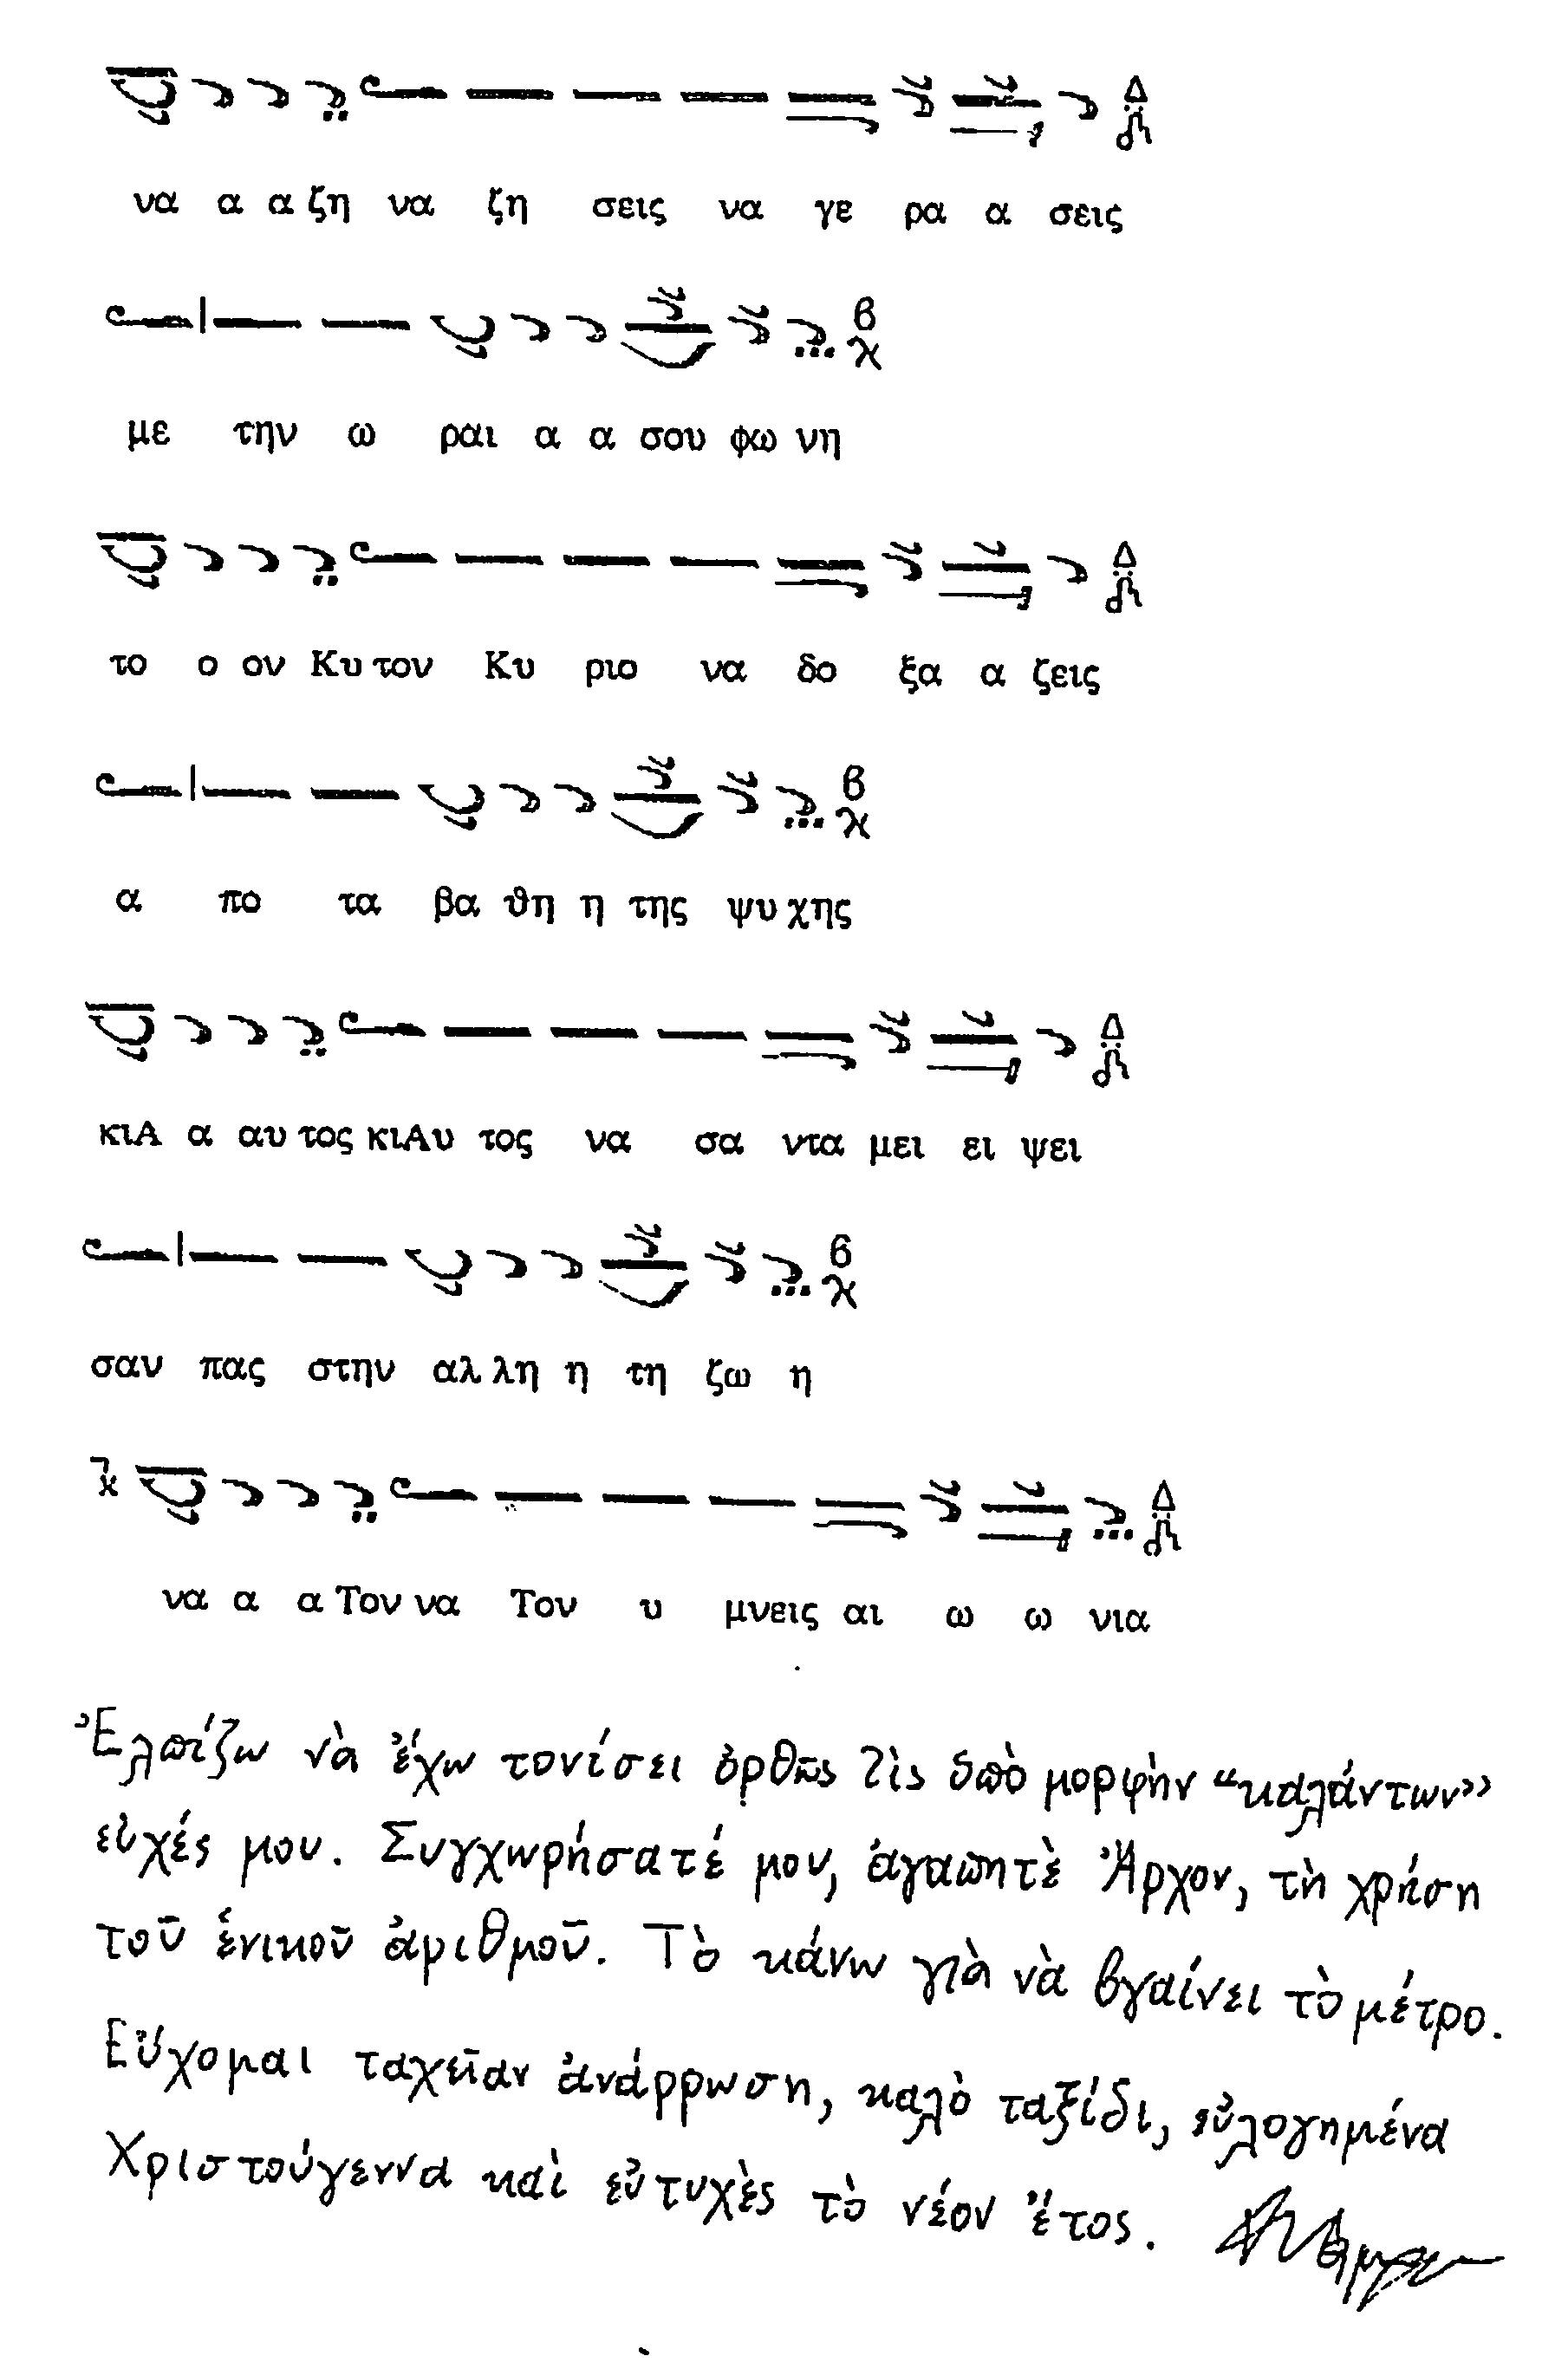 να α α ζη να ζη σεις να γε ρα α σεις
με την ω ραι α α σου φω νη
το ο ον Κυ τον Κυ ριο να δο ξα α ζεις
α πο τα βα θη η της ψυ χης
κιΑ α αυ τος κιΑυ τος να σα ντα μει ει ψει
σαν πας στην αλ λη η τη ζω η
να α α Τον να Τον υ μνεις αι ω ω νια
Ἐλπίζω νὰ ἔχω τονίσει ὀρθῶς τὶς ὑπὸ μορφὴν “καλάντων”
εὐχές μου. Συγχωρήσατέ μου, ἀγαπητὲ Ἄρχον, τὴ χρήση
τοῦ ἑνικοῦ ἀριθμοῦ. Τὸ κάνω γιὰ νὰ βγαίνει τὸ μέτρο.
Εὔχομαι ταχεῖαν ἀνάρρωση, καλὸ ταξίδι, εὐλογημένα
Χριστούγεννα καὶ εὐτυχὲς τὸ νέον ἔτος.